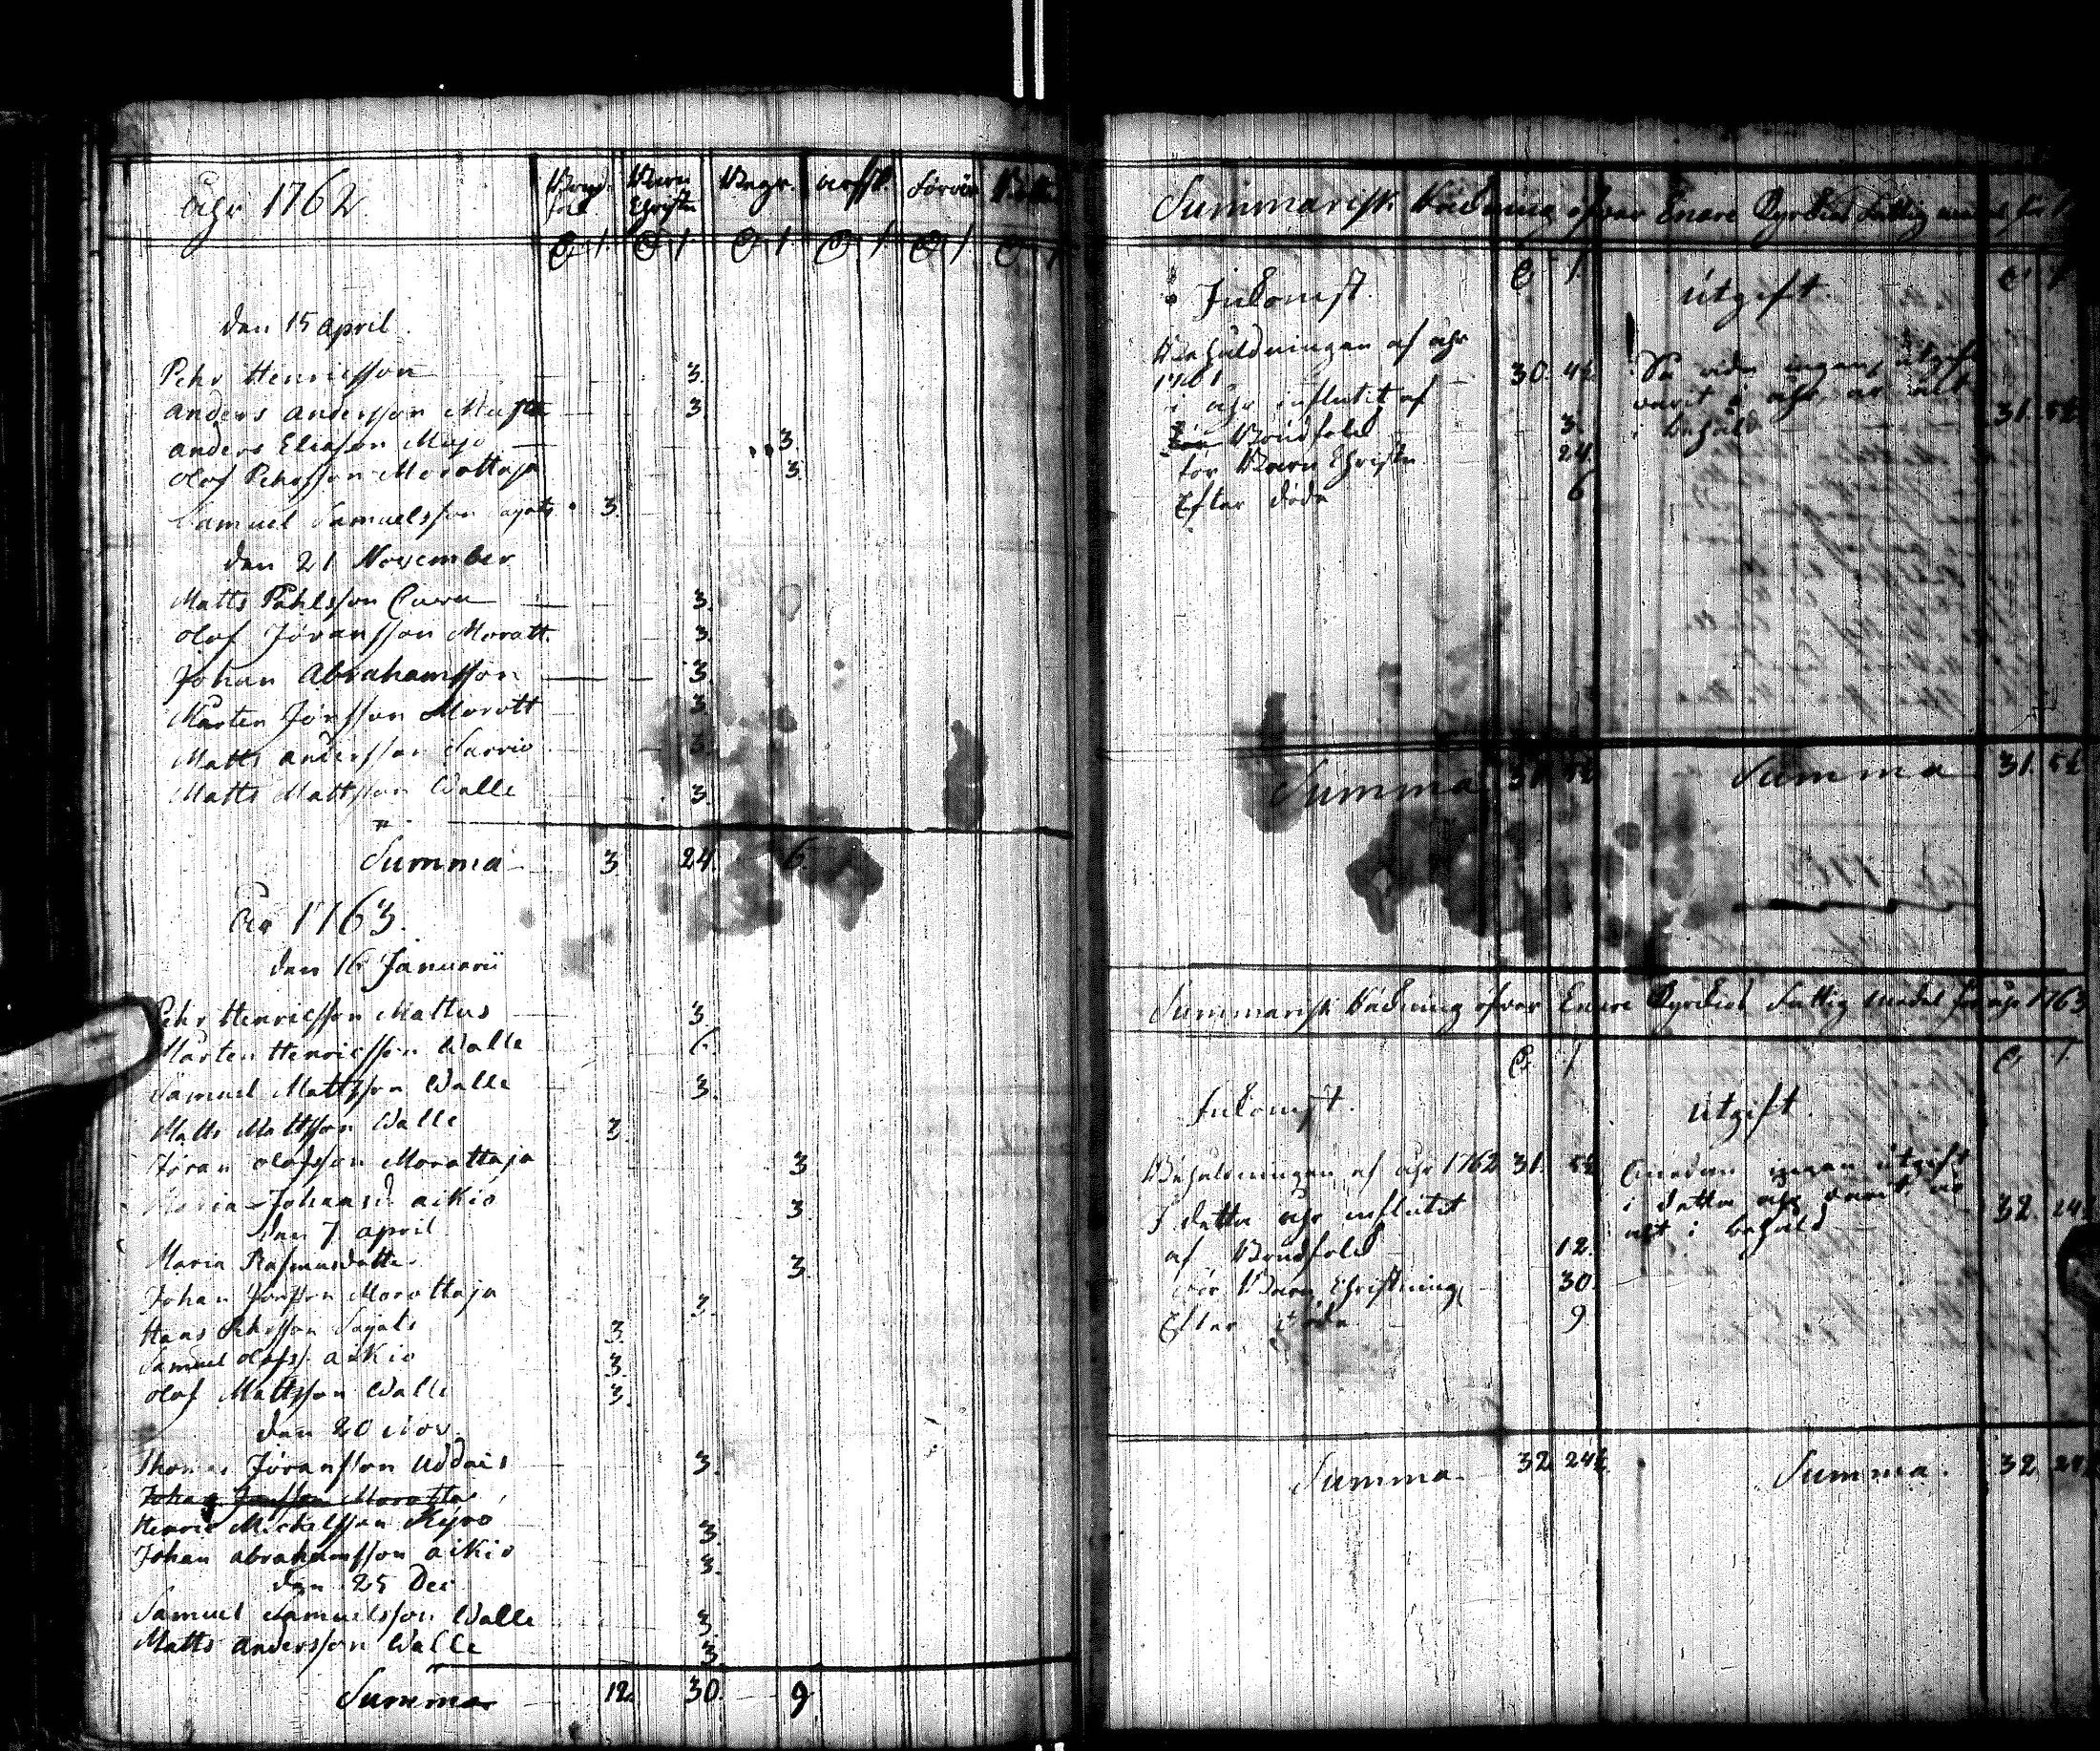 Åhr 1762
Barn Christn
Begr.
den 15 April.
Pehr Henricsson 3.
Anders Andersson 3.
Anders Eliasson Mujo 3
Olof Pehrsson Morottaja 3.
Samuel Samuelsson 3.
den 21 November
Matts Påhlsson 3.
Olof Jöransson Moratt. 3.
Johan Abrahamsson 3
Mårten Jönsson Morott 3.
Matts Andersson Sarrio 3.
Matts Mattsson Walle 3.
Summa 3. 24. 6.
Åhr 1763.
den 16 Januarii
Pehr Henricsson Mattus 3.
Mårten Henricsson Walle 6.
Samuel Mattsson Walle 3.
Matts Mattsson Walle 3.
Jöran Olofsson Morottaja 3
Maria Johansd. Aikio 3.
den 7 April
Maria Rasmusdotter 3.
Johan Jönsson Morottaja 3.
Hans Pehrsson 3.
Samuel Olofss. Aikio 3.
Olof Mattsson Walle 3.
den 20 Nov.
Thomas Jöransson 3.
Johan Jönsson Morotta
Henric Mickelsson Kyrö 3.
Johan Abrahamsson Aikio 3.
den 25 Dec
Samuel Samuelsson Walle 3.
Matts Andersson Walle 3.
Summa 12. 30. 9
Summarisk Räkning öfver Enare Kyrckios Fattig
Inkomst.
Behåldningen af åhr
1761 30. 4½
i åhr influtit af
3.
för Barn Christn. 24.
Efter döda 6
Summa 31. 5½
Utgift.
ingen utgift
varit i åhr är alt
i behåld 31. 5½
Summa 31. 5½
Summarisk Räkning öfver Enare Kyrckios Fattig Medel för åhr 1763
Inkomst.
Behåldningen af åhr 1762 31. 5½
I detta åhr influtit
af 12.
för Barn Christning 30.
Efter döda 9
Summa 32. 24½
Utgift.
Emedan ingen utgift
i detta åhr varit är
alt i behåld 32. 24½
Summa. 32. 24½